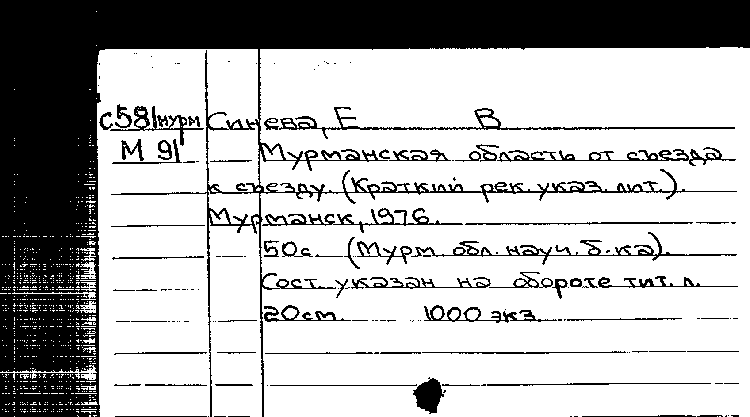 С58/мурм Синева, Е В
М 91 Мурманская область от съезда
к съезду. (Краткий рек. указ. лит.).
Мурманск, 1976.
50с. (Мурм. обл. науч. б-ка).
Сост. указан на обороте тит. л.
20см. 1000 экз.